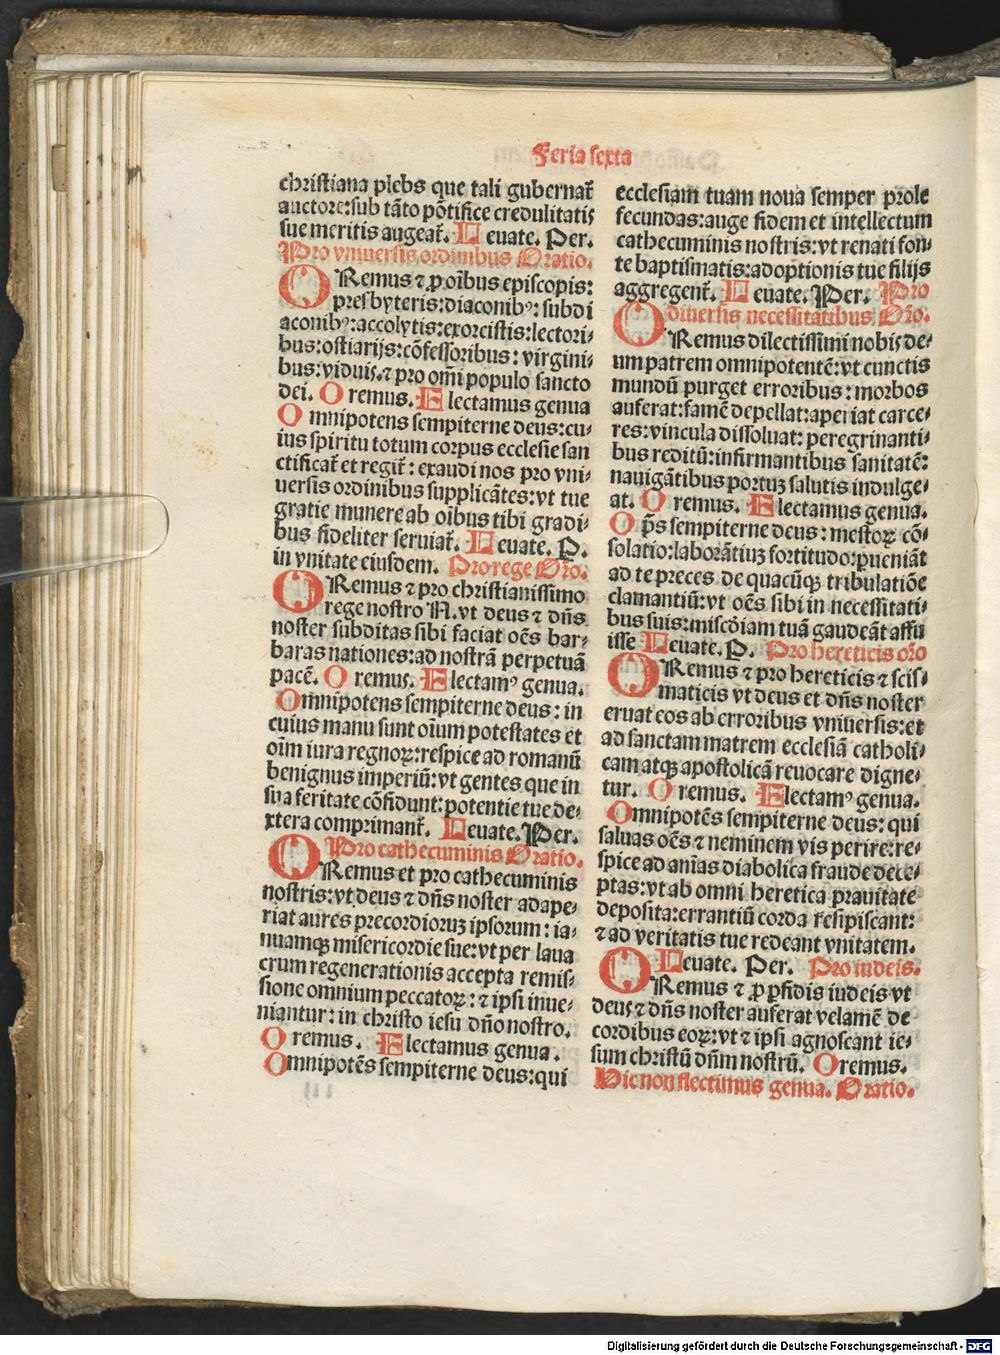 Feria sexta
christiana plebs que tali gubernat̃
auctore:sub tãto põtifice credulitatis
sue meritis augeat̃. Leuate. Per.
Pro vniuersis ordinibus Oratio.
ORemus ⁊ ꝓ oĩbus episcopis:
presbyteris:diaconibꝰ: subdi
aconibꝰ:accolytis:exorcistis:lectori⸗
bus:ostiarijs:cõfessoribus: virgini⸗
bus:viduis.⁊ pro om̃i populo sancto
dei. Oremus. Flectamus genua
Omnipotens sempiterne deus:cu⸗
ius spiritu totum corpus ecclesie san
ctificat̃ et regit̃: exaudi nos pro vni⸗
uersis ordinibus supplicãtes:vt tue
gratie munere ab oĩbus tibi gradi⸗
bus fideliter seruiat̃. Leuate. P.
in vnitate eiusdem. Pro rege Oro.
ORemus ⁊ pro christianissimo
rege nostro N. vt deus ⁊ dñs
noster subditas sibi faciat oẽs bar⸗
baras nationes:ad nostrã perpetuã
pacẽ. Oremus. Flectamꝰ genua.
Omnipotens sempiterne deus: in
cuius manu sunt oĩum potestates et
oĩm iura regnoꝝ:respice ad romanũ
benignus imperiũ:vt gentes que in
sua feritate cõfidunt:potentie tue de⸗
xtera comprimant̃. Leuate. Per.
Pro cathecuminis Oratio.
ORemus et pro cathecuminis
nostris:vt deus ⁊ dñs noster adape⸗
riat aures precordioruꝫ ipsorum: ia⸗
nuamqꝫ misericordie sue:vt per laua
crum regenerationis accepta remis⸗
sione omnium peccatoꝝ: ⁊ ipsi inue⸗
niantur: in christo iesu dño nostro.
Oremus. Flectamus genua.
Omnipotẽs sempiterne deus:qui
ecclesiam tuam noua semper prole
fecundas:auge fidem et intellectum
cathecuminis nostris:vt renati fon⸗
te baptismatis:adoptionis tue filijs
aggregent̃. Leuate. Per. Pro
diuersis necessitatibus Oro.
ORemus dilectissimi nobis de⸗
um patrem omnipotentẽ:vt cunctis
mundũ purget erroribus: morbos
auferat:famẽ depellat:aperiat carce⸗
res:vincula dissoluat: peregrinanti⸗
bus reditũ:infirmantibus sanitatẽ:
nauigãtibus portuꝫ salutis indulge⸗
at. Oremus. Flectamus genua.
Op̃s sempiterne deus: mestoꝝ cõ⸗
solatio:laborãtiuꝫ fortitudo:ꝑueniãt
ad te preces de quacũqꝫ tribulatiõe
clamantiũ:vt oẽs sibi in necessitati⸗
bus suis:miscõiam tuã gaudeãt affu
isse Leuate. P. Pro hereticis oro
ORemus ⁊ pro hereticis ⁊ scis⸗
maticis vt deus et dñs noster
eruat eos ab erroribus vniuersis:et
ad sanctam matrem ecclesiã catholi⸗
cam atqꝫ apostolicã reuocare digne⸗
tur. Oremus. Flectamꝰ genua.
Omnipotẽs sempiterne deus: qui
saluas oẽs ⁊ neminem vis perire:re⸗
spice ad aĩas diabolica fraude dece⸗
ptas:vt ab omni heretica prauitate
deposita:errantiũ corda resipiscant:
⁊ ad veritatis tue redeant vnitatem.
Leuate. Per. Pro iudeis.
ORemus ⁊ ꝓ ꝑfidis iudeis vt
deus ⁊ dñs noster auferat velamẽ de
cordibus eoꝝ:vt ⁊ ipsi agnoscant ie⸗
sum christũ dñm nostrũ. Oremus.
Hic non flectimus genua. Oratio.
Digitalisierung gefördert durch die Deutsche Forschungsgemeinschaft - DFG